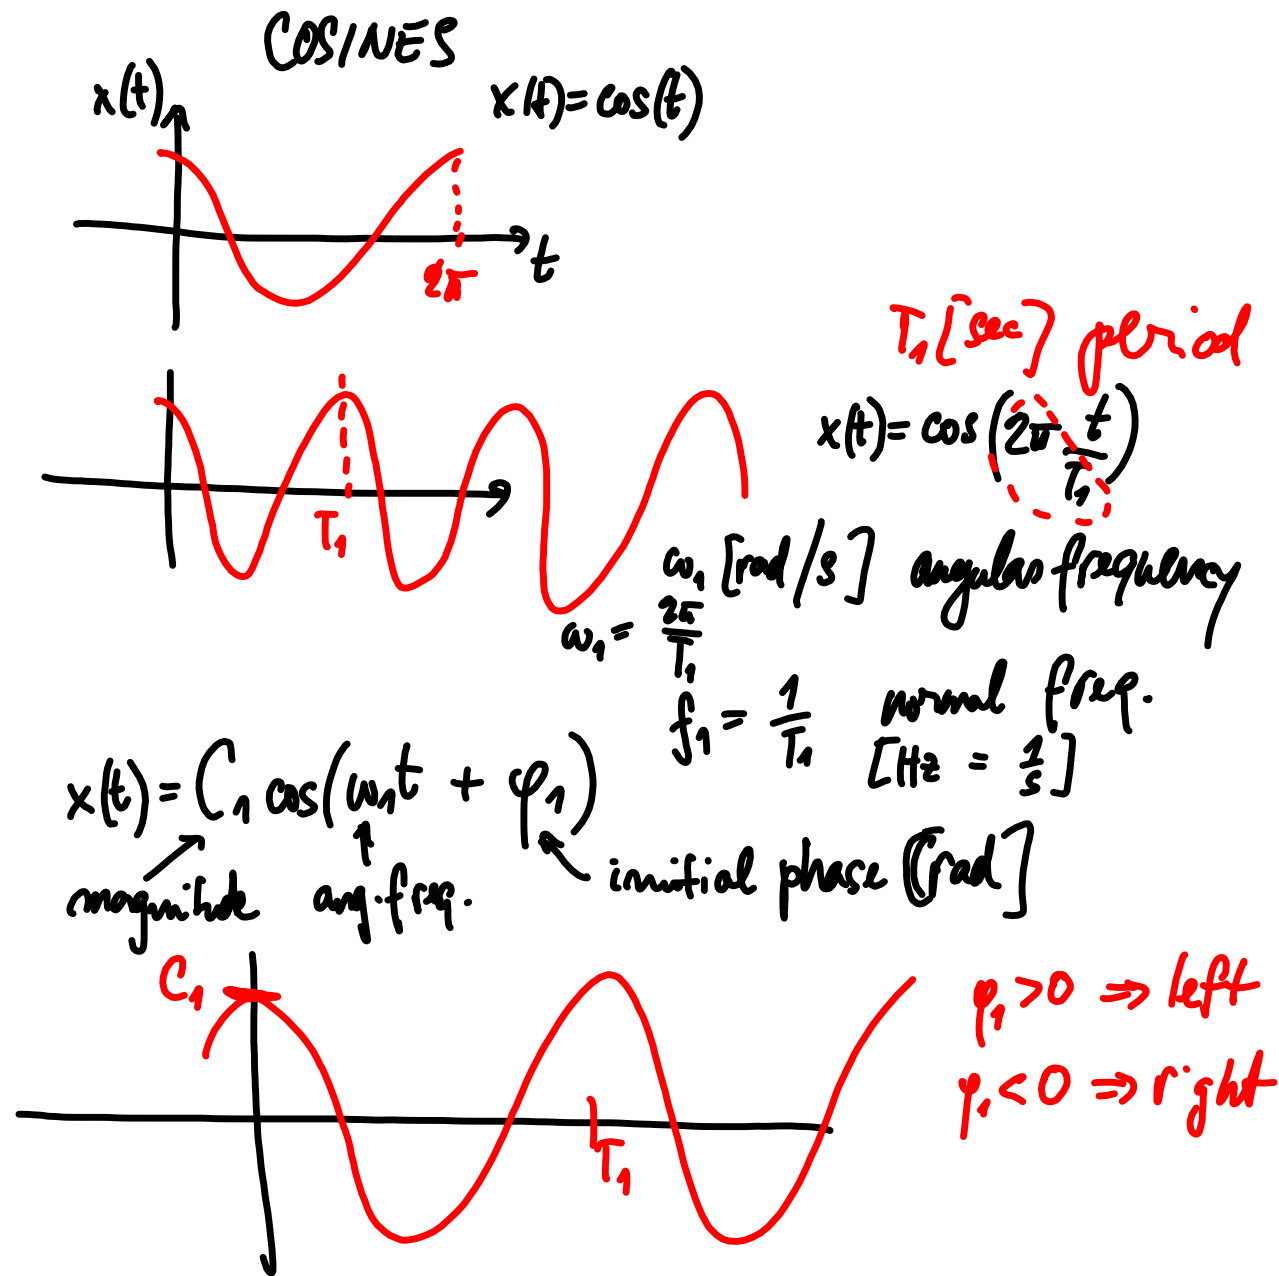 COSINES
x(t)
x(t) = cos(t)
t
2π
T₁ [sec] period
x(t) = cos(2π t/T₁)
T₁
ω₁ [rad/s] angular frequency
ω₁ = 2π/T₁
f₁ = 1/T₁ normal freq.
[Hz = 1/s]
x(t) = C₁ cos(ω₁t + φ₁)
magnitude ang.freq. initial phase [rad]
C₁
φ₁>0 ⇒ left
φ₁<0 ⇒ right
T₁